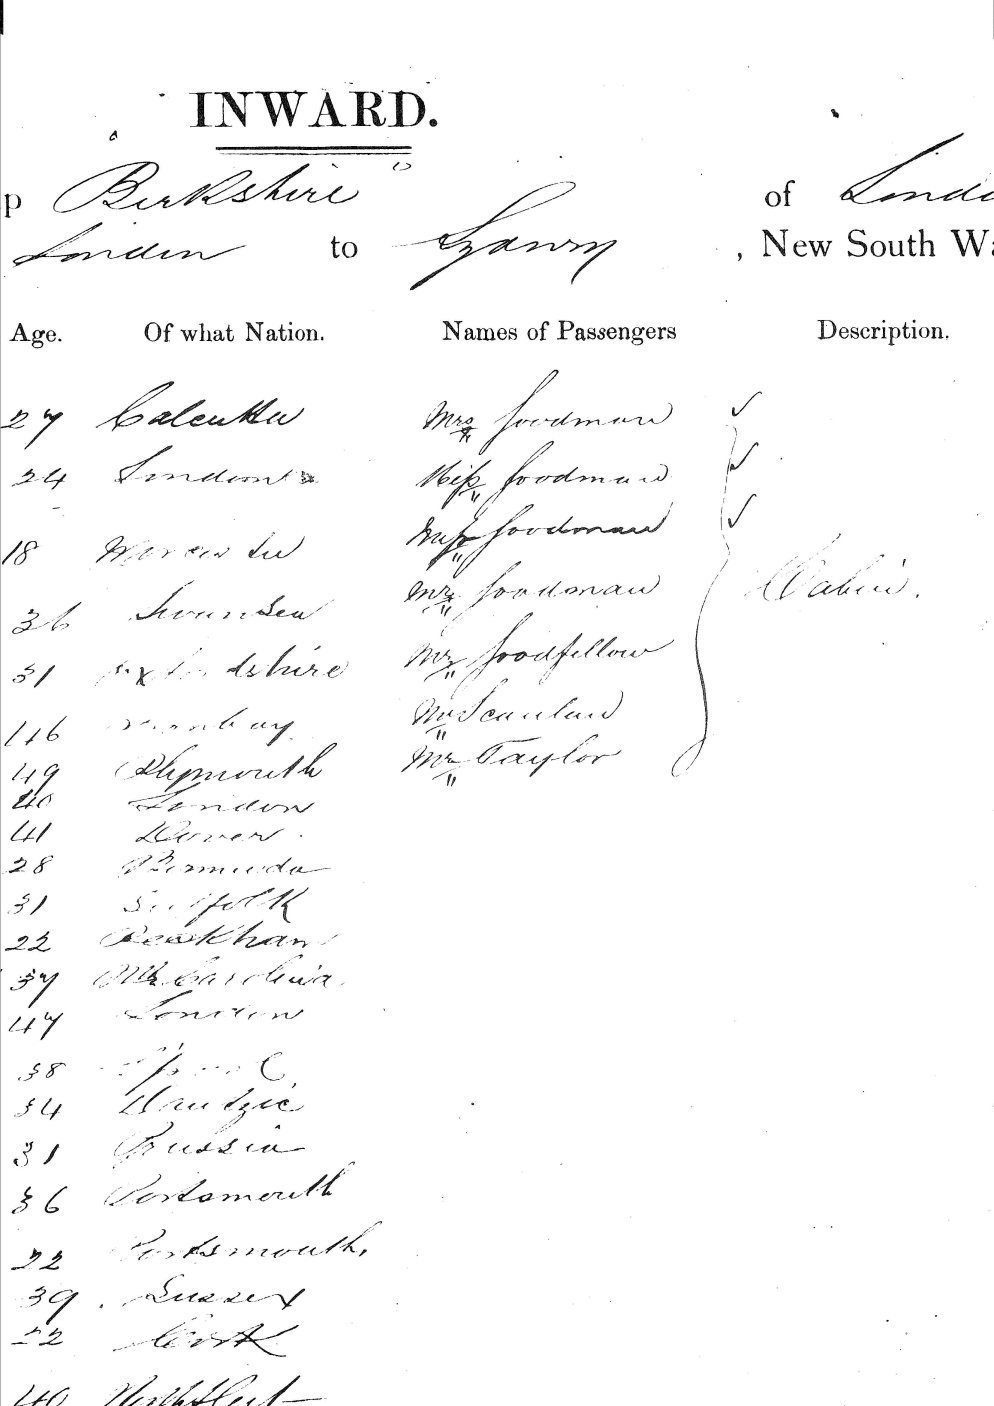 INWARD.
p Berkshire of Londo
London to Sydney , New South Wa
Age. Of what Nation. Names of Passengers Description.
27 Calcutta Mrs Goodman
24 London Miss Goodman
18 Worcester Miss Goodman
36 Swansea Mr Goodman Cabin.
31 Oxfordshire Mr Goodfellow
46 Mr Scanlan
49 Plymouth Mr Taylor
40 London
41 Dover
28 Bermuda
31 Suffolk
22 Peckham
37 Carolina
47 London
38
34 Dantzic
31 Prussia
36 Portsmouth
22 Portsmouth,
39 Sussex
22 Cork
40 Northfleet